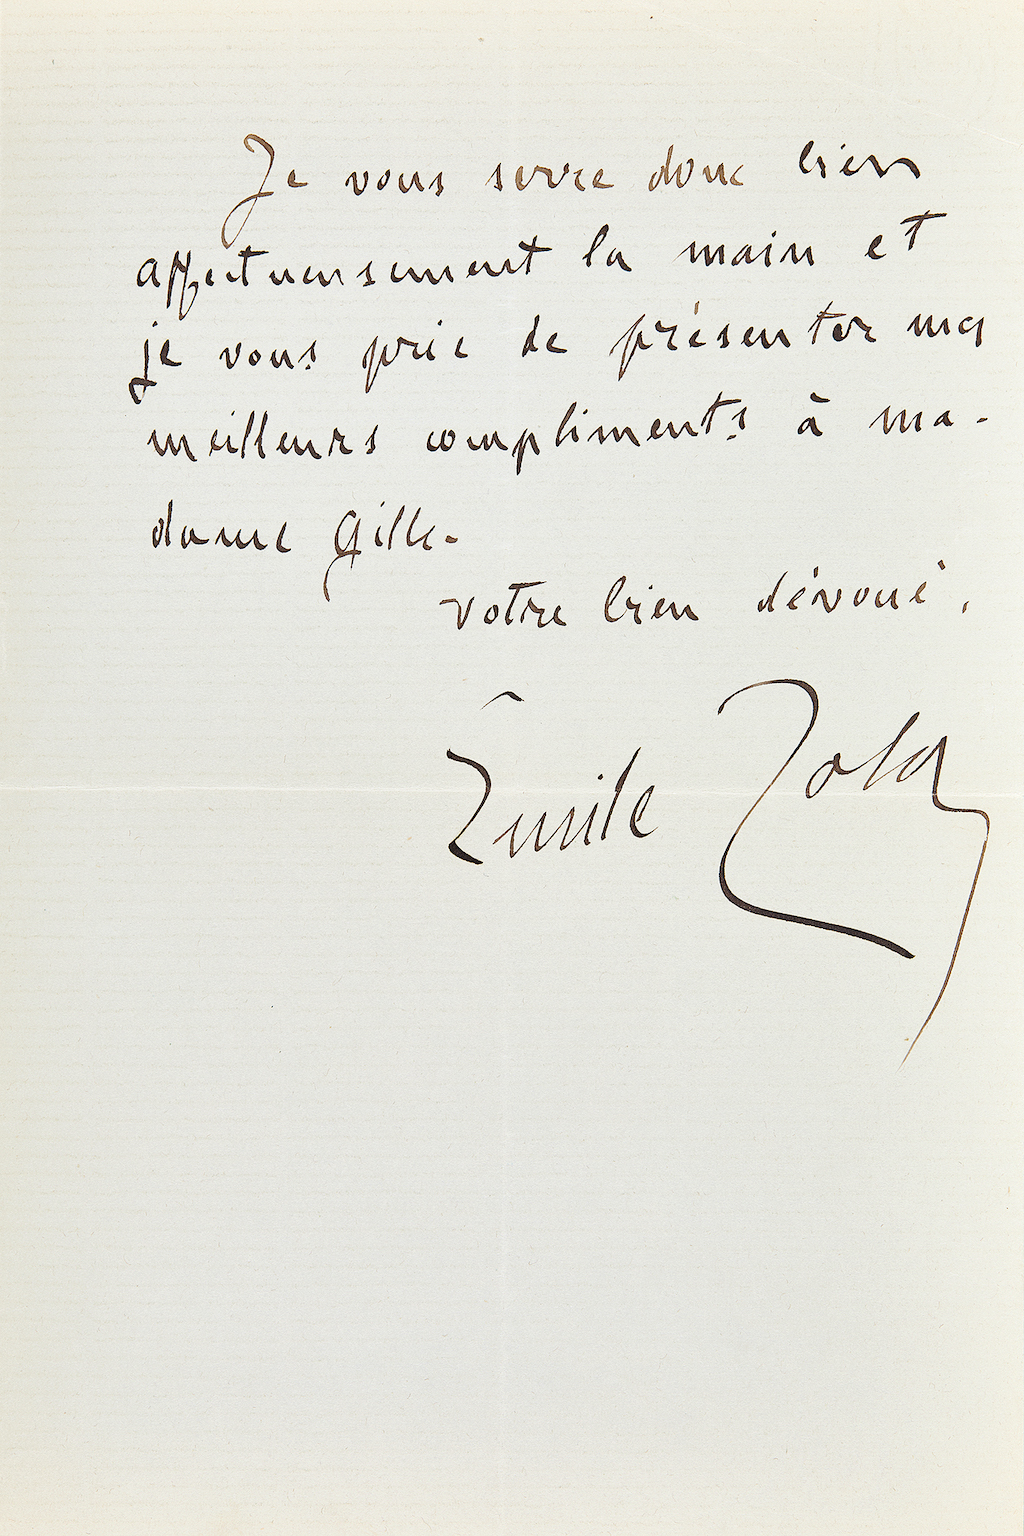 Je vous serre donc bien
affectueusement la main et
je vous prie de présenter mes
meilleurs compliments à ma-
dame Gille.
votre bien dévoué,
Émile Zola